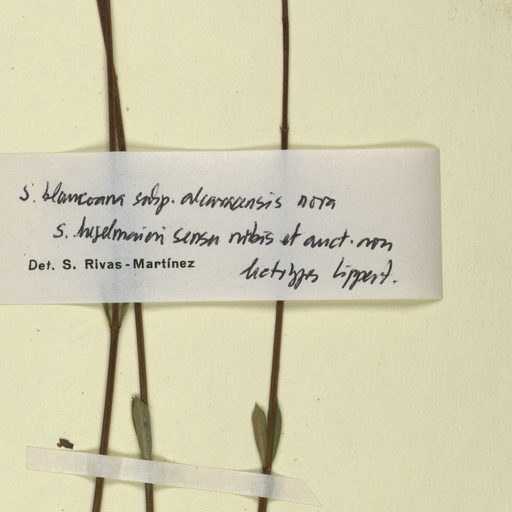 S. blancoana subsp. alcarracensis nova
S. hegelmaieri sensu nobis et auct. non
Det. S. Rivas-Martínez
lectotypus Lippert.